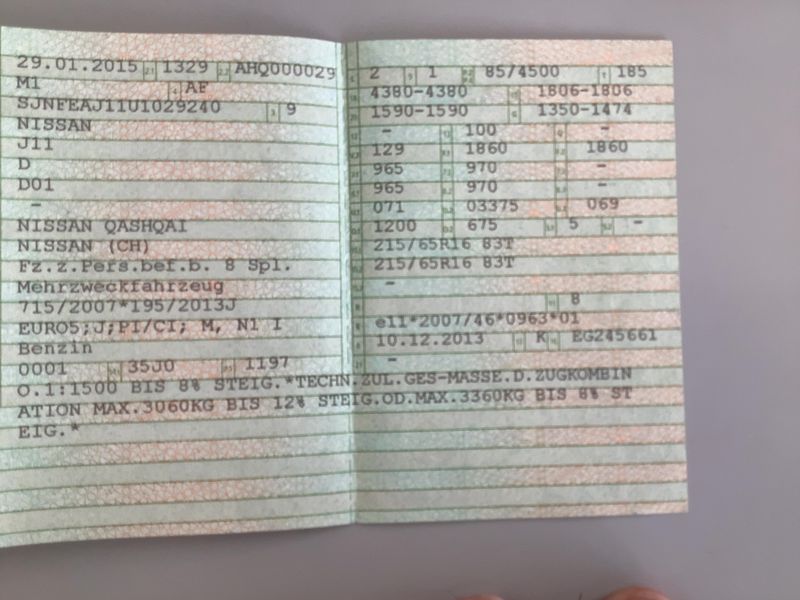 29.01.2015 1329 AHQ000029
M1 AF
SJNFEAJ11U1029240 9
NISSAN
J11
D
D01
-
NISSAN QASHQAI
NISSAN (CH)
Fz.z.Pers.bef.b. 8 Spl.
Mehrzweckfahrzeug
715/2007*195/2013J
EURO5;J;PI/CI; M, N1 I
Benzin
0001 35J0 1197
2 1 85/4500 185
4380-4380 1806-1806
1590-1590 1350-1474
- 100 -
129 1860 1860
965 970 -
965 970 -
071 03375 069
1200 675 5 -
215/65R16 83T
215/65R16 83T
-
8
e11*2007/46*0963*01
10.12.2013 K EG245661
-
O.1:1500 BIS 8% STEIG.*TECHN.ZUL.GES-MASSE.D.ZUGKOMBIN
ATION MAX.3060KG BIS 12% STEIG.OD.MAX.3360KG BIS 8% ST
EIG.*